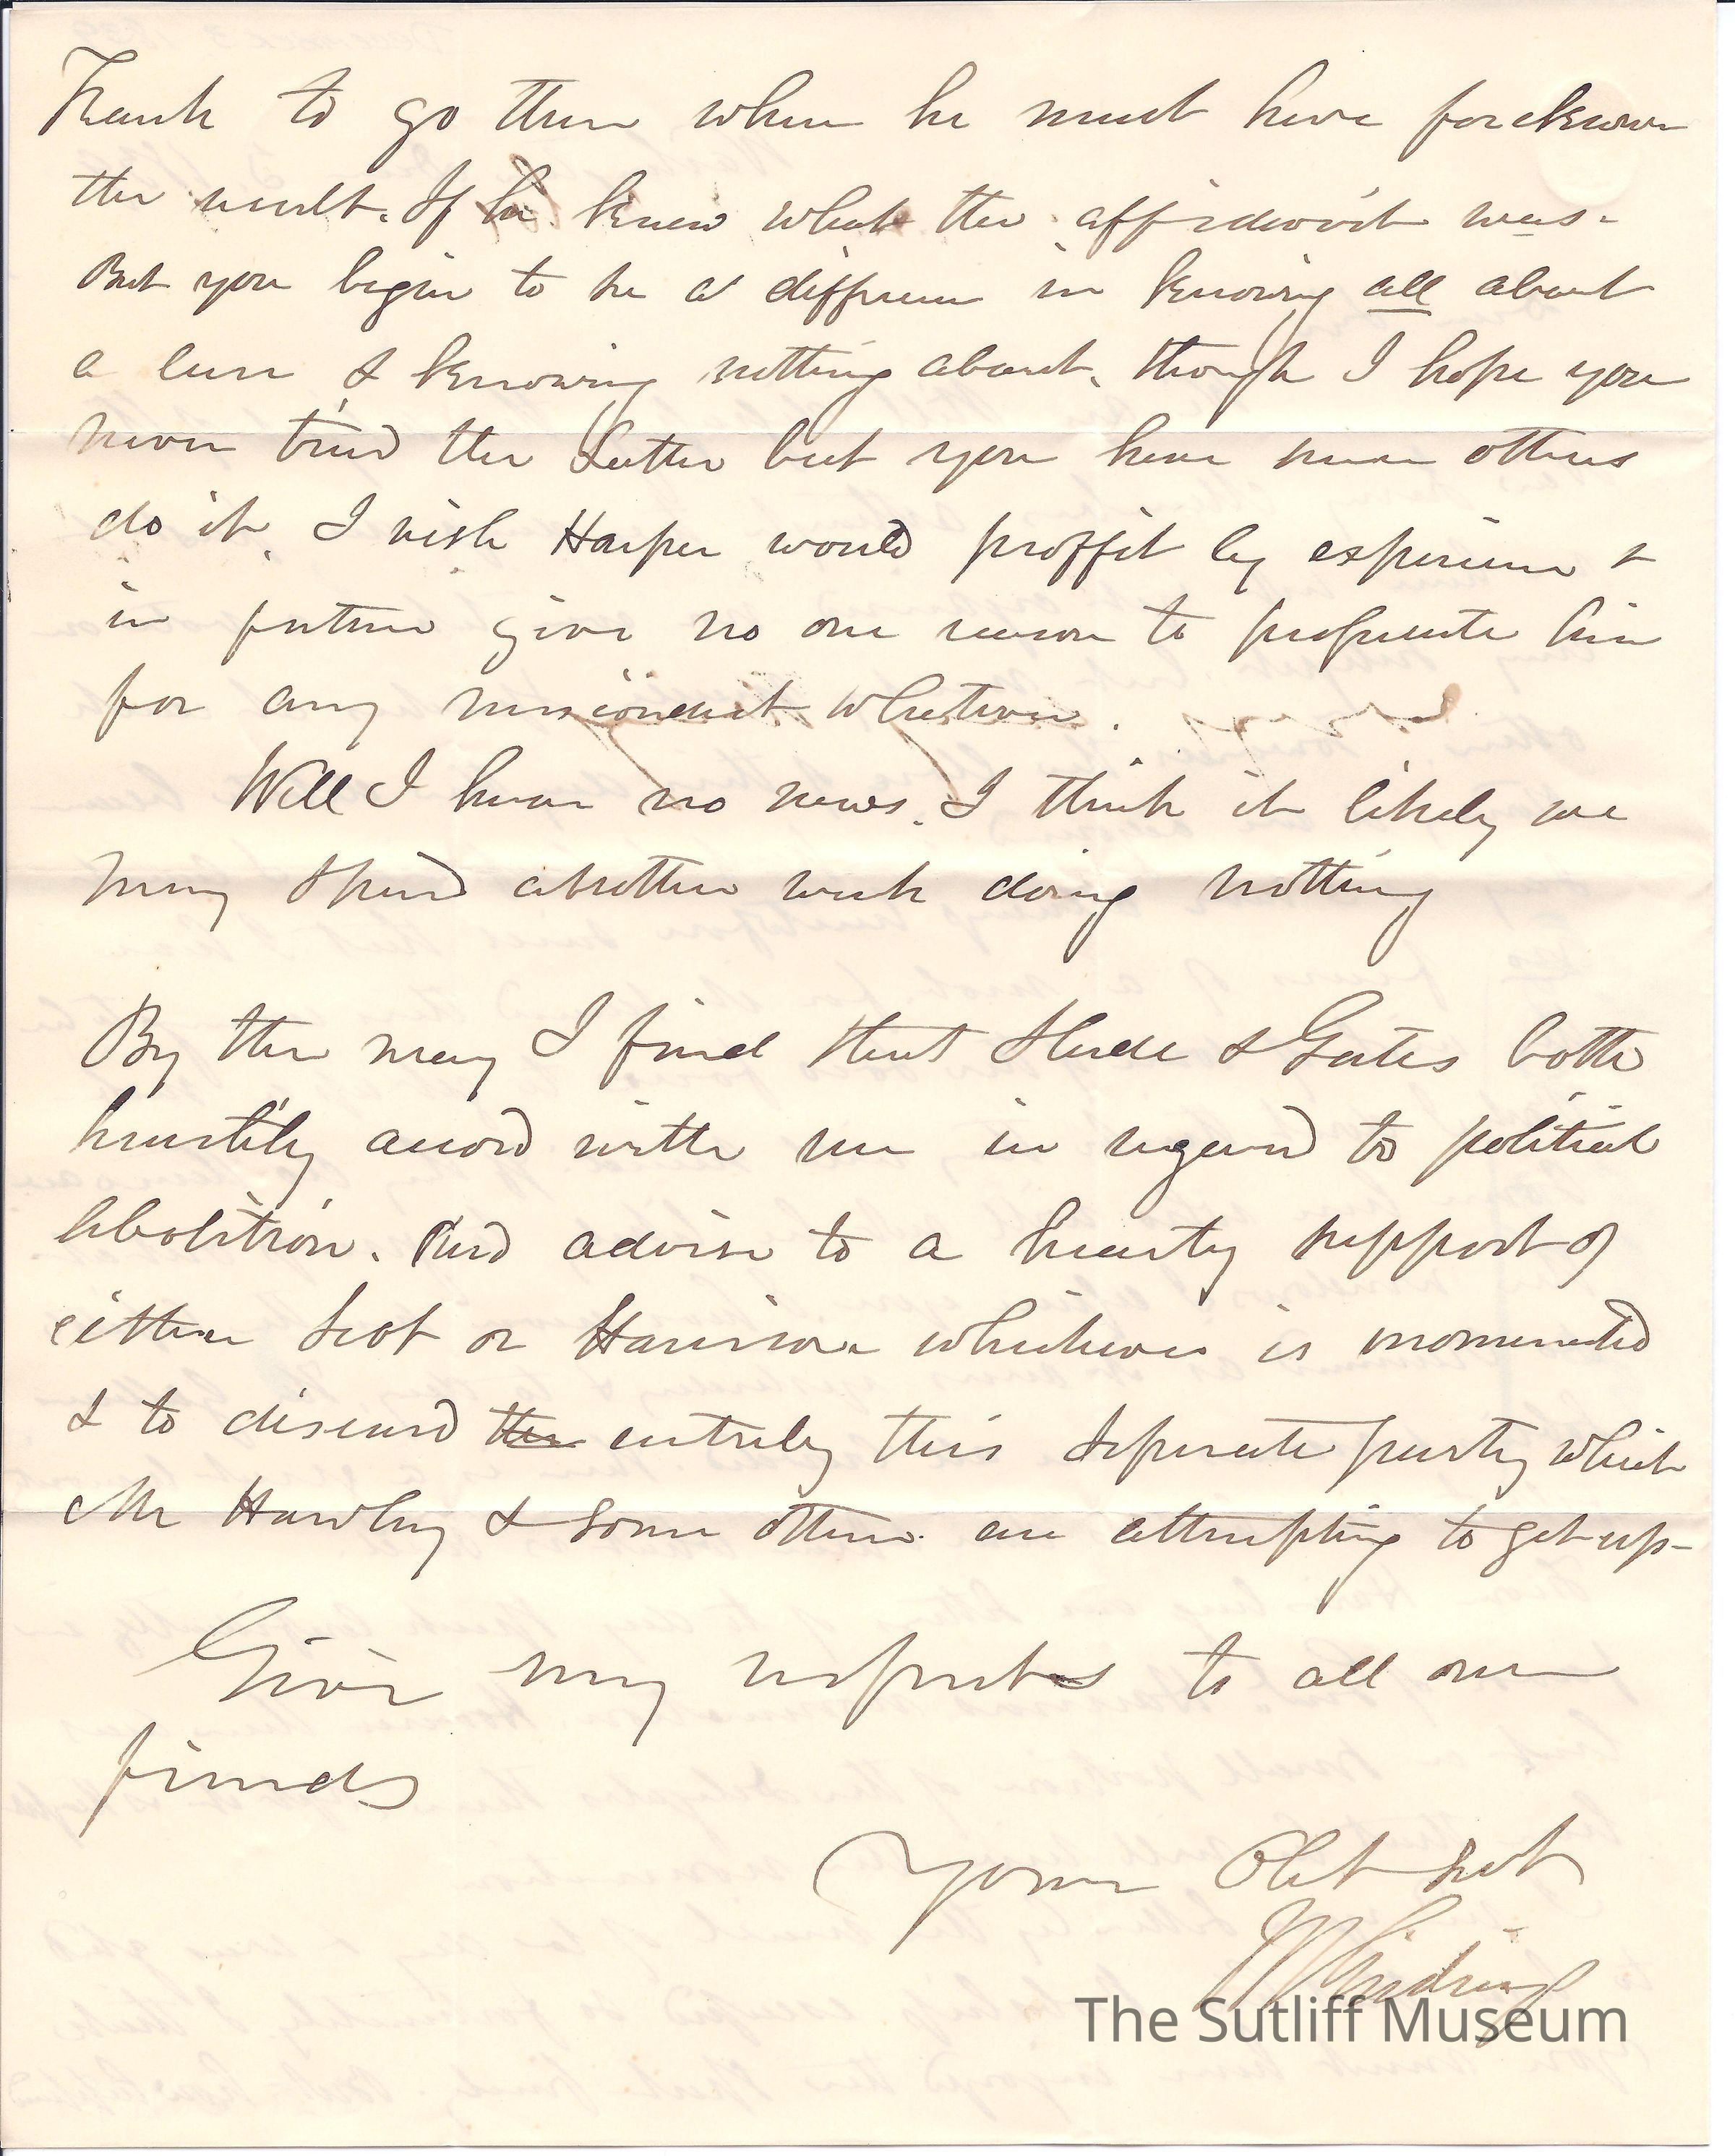 Frank to go there when he must have foreknown
the result. If he knew what the affidavit was-
But you begin to see a difference in knowing all about
a case & knowing nothing about. though I hope you
never tried the Latter but you have seen others
do it. I wish Harper would proffit by experience &
in future give no one reason to prosecute him
for any missconduct whatever.
Well I have no news. I think it likely we
may spend another week doing nothing
By the way I find that Slade & Gates both
heartily accord with me in regard to political
abolition. And advise to a hearty support of
either Scot or Harrison whichever is nomenated
& to discard the entirely this seperate party which
Mr Hawley & some others are attempting to get up-
Give my respects to all our
friends
Yours Obt Svt
J R Giddings
The Sutliff Museum